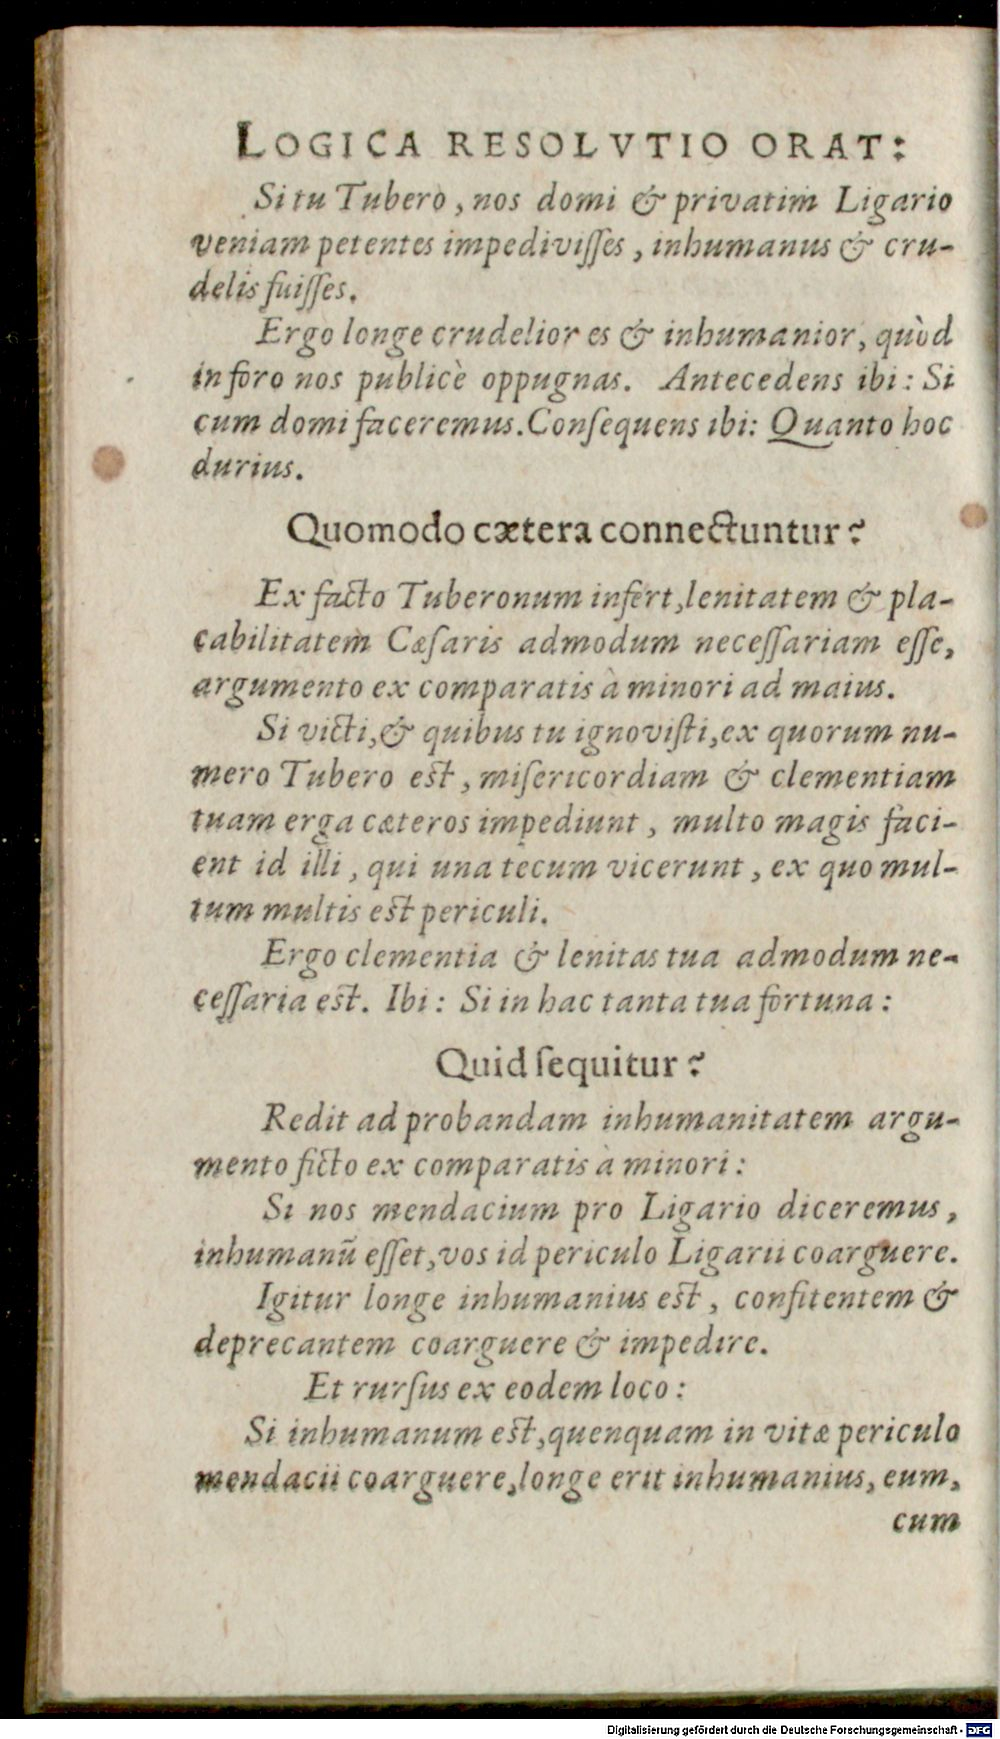 LOGICA RESOLVTIO ORAT:
Si tu Tubero, nos domi & privatim Ligario
veniam petentes impedivisſes, inhumanus & cru-
delis fuiſſes.
Ergo longe crudelior es & inhumanior, quòd
in foro nos publicè oppugnas. Antecedens ibi: Si
cum domi faceremus. Conſequens ibi: Quanto hoc
durius.
Quomodo cætera connectuntur?
Ex facto Tuberonum infert, lenitatem & pla-
cabilitatem Cæſaris admodum neceſſariam eſſe,
argumento ex comparatis à minori ad maius.
Si victi, & quibus tu ignoviſti, ex quorum nu-
mero Tubero est, miſericordiam & clementiam
tuam erga cæteros impediunt, multo magis faci-
ent id illi, qui una tecum vicerunt, ex quo mul-
tum multis est periculi.
Ergo clementia & lenitas tua admodum ne-
ceſſaria est. Ibi: Si in hac tanta tua fortuna:
Quid ſequitur?
Redit ad probandam inhumanitatem argu-
mento ficto ex comparatis à minori:
Si nos mendacium pro Ligario diceremus,
inhumanū eſſet, vos id periculo Ligarii coarguere.
Igitur longe inhumanius est, confitentem &
deprecantem coarguere & impedire.
Et rurſus ex eodem loco:
Si inhumanum est, quenquam in vitæ periculo
mendacii coarguere, longe erit inhumanius, eum,
cum
Digitalisierung gefördert durch die Deutsche Forschungsgemeinschaft - DFG